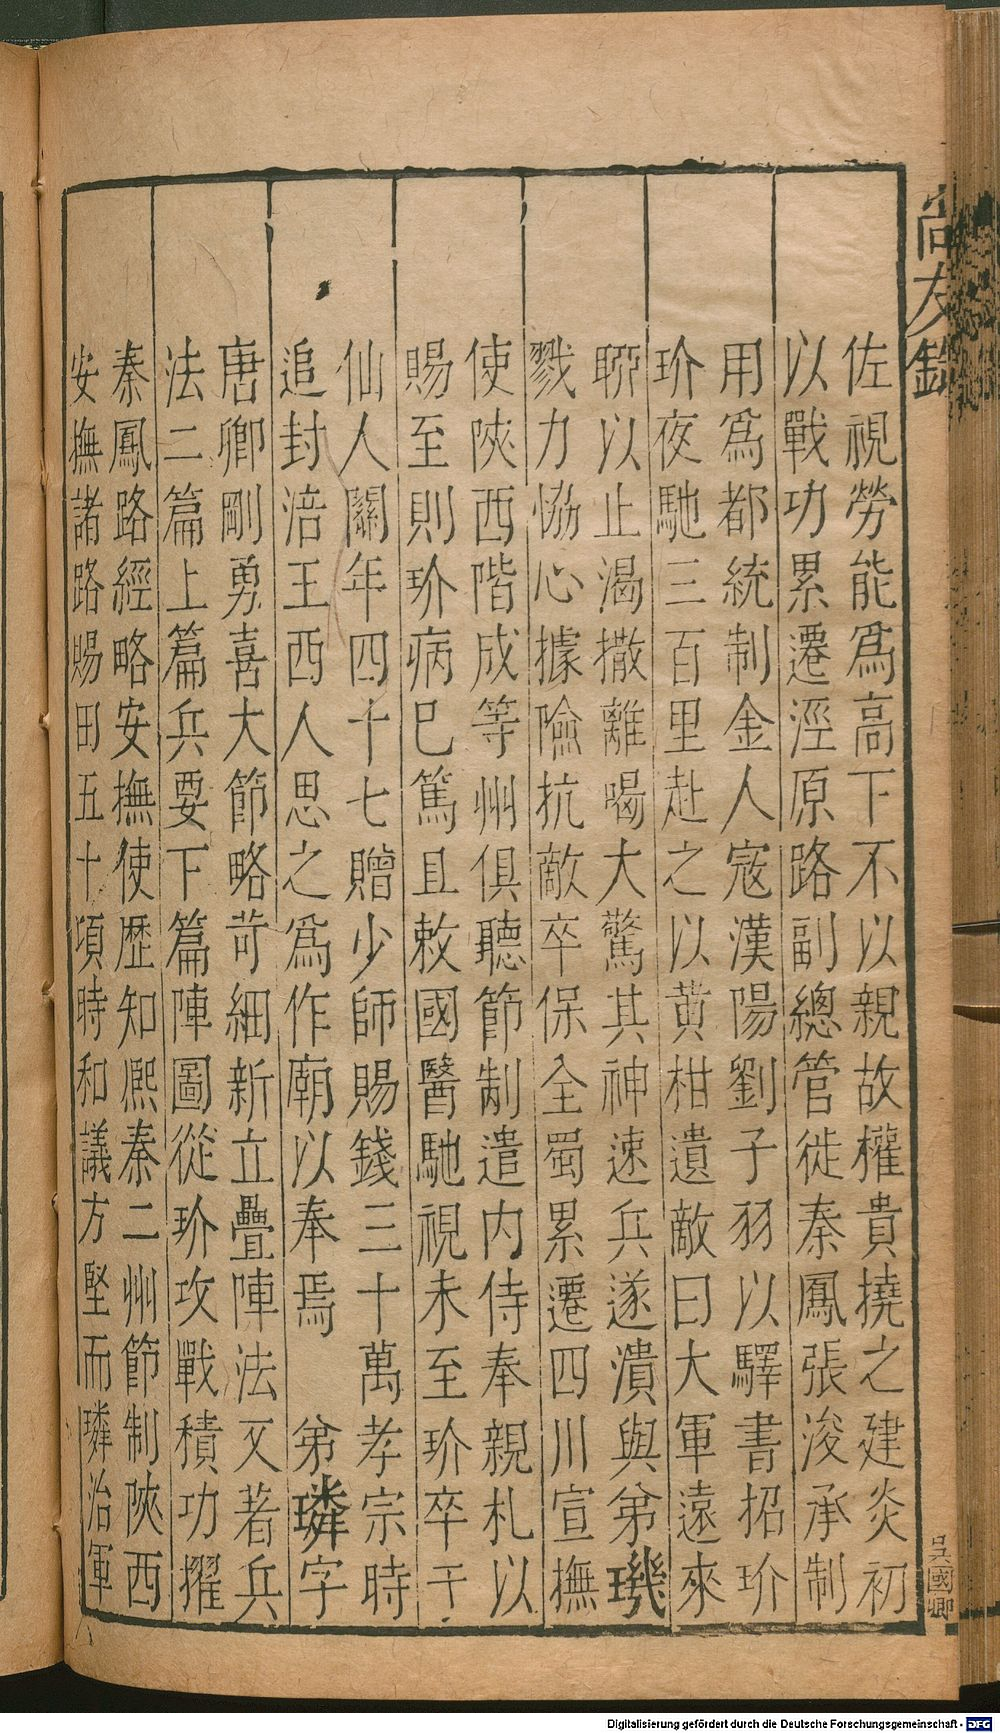 尚友錄
佐視勞能爲高下不以親故權貴撓之建炎初
以戰功累遷涇原路副總管徙秦鳳張浚承制
用爲都統制金人寇漢陽劉子羽以驛書招玠
玠夜馳三百里赴之以黃柑遺敵曰大軍遠來
聊以止渴撒離喝大驚其神速兵遂潰與弟璘
戮力恊心據險抗敵卒保全蜀累遷四川宣撫
使陝西階成等州俱聽節制遣内侍奉親札以
賜至則玠病巳篤且敕國醫馳視未至玠卒于
仙人關年四十七贈少師賜錢三十萬孝宗時
追封涪王西人思之爲作廟以奉焉　弟璘字
唐卿剛勇喜大節略苛細新立疊陣法又著兵
法二篇上篇兵要下篇陣圖從玠攻戰積功擢
秦鳳路經略安撫使歷知熈秦二州節制陝西
安撫諸路賜田五十頃時和議方堅而璘治軍
吳國卿
Digitalisierung gefördert durch die Deutsche Forschungsgemeinschaft - DFG